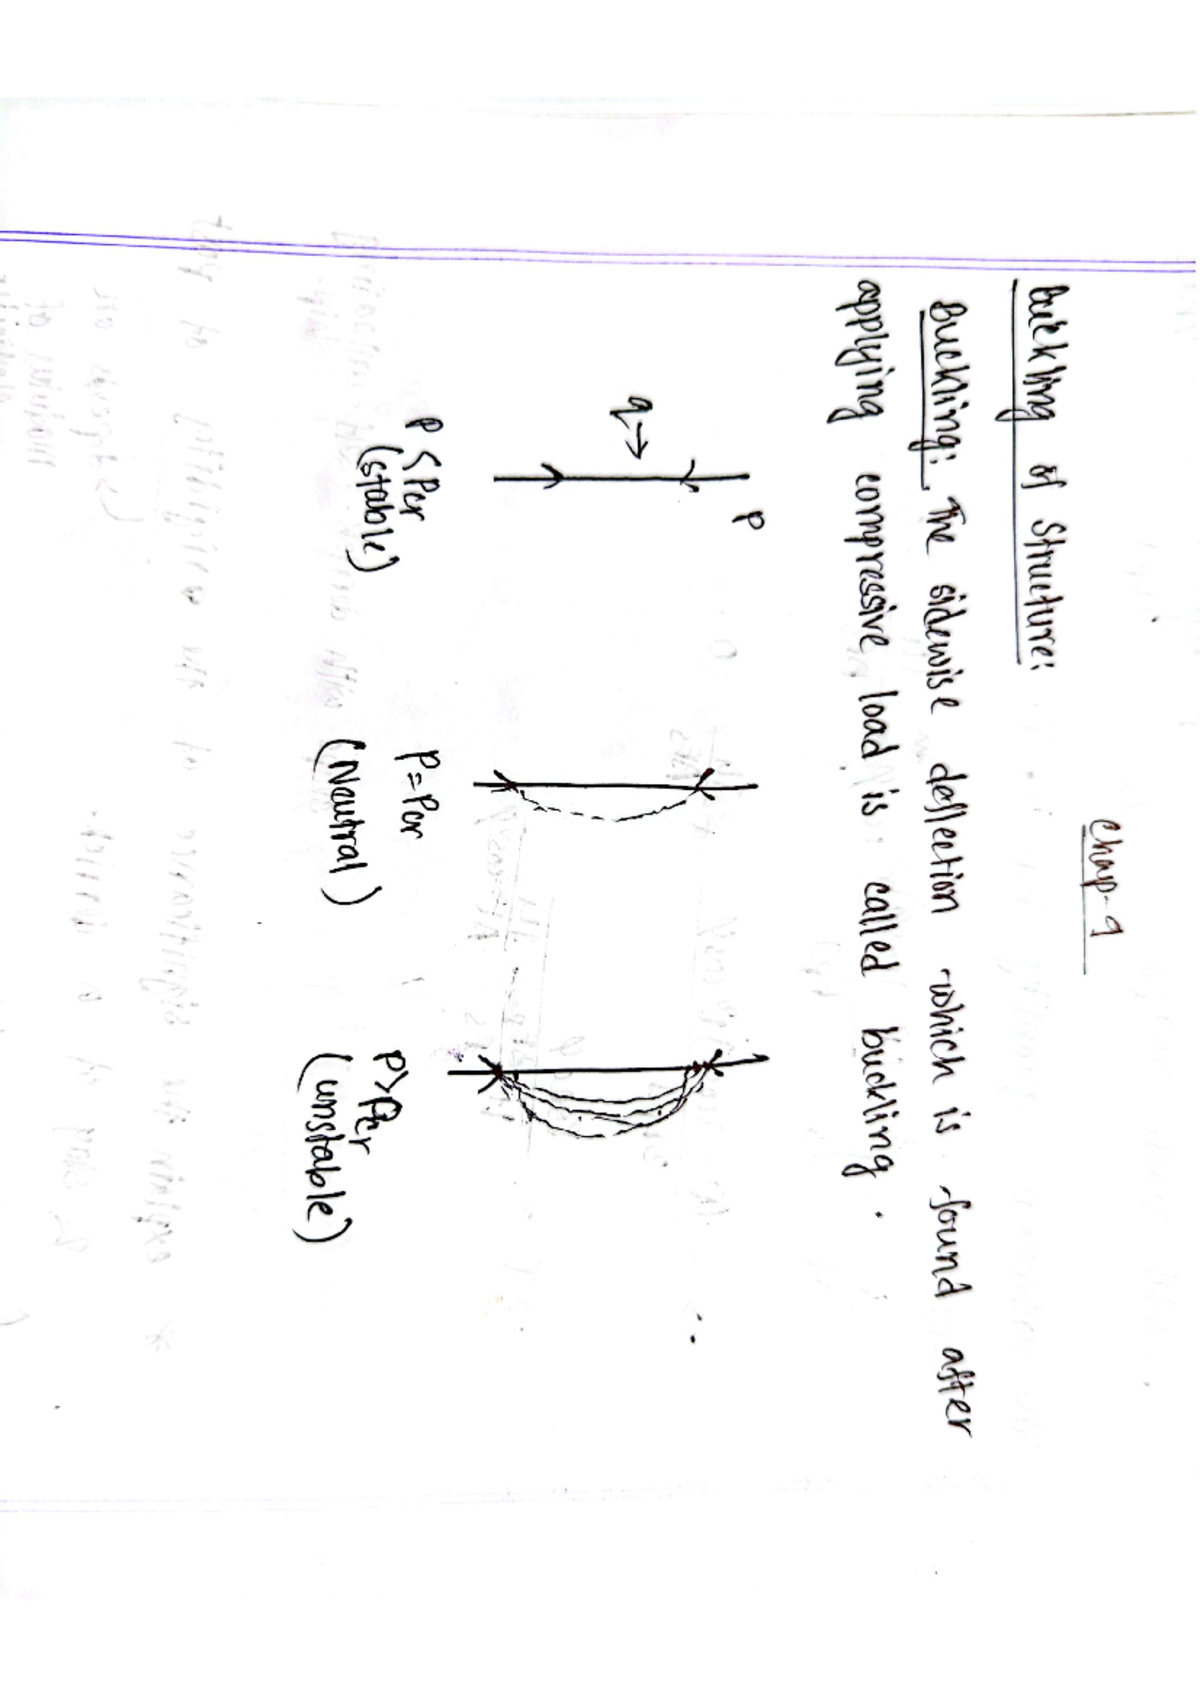 Chap-9
Buckling of Structure:
Buckling: The sidewise deflection which is found after
applying compressive load is called buckling.
P
q
P<Pcr
(stable)
P=Pcr
(Neutral)
P>Pcr
(unstable)